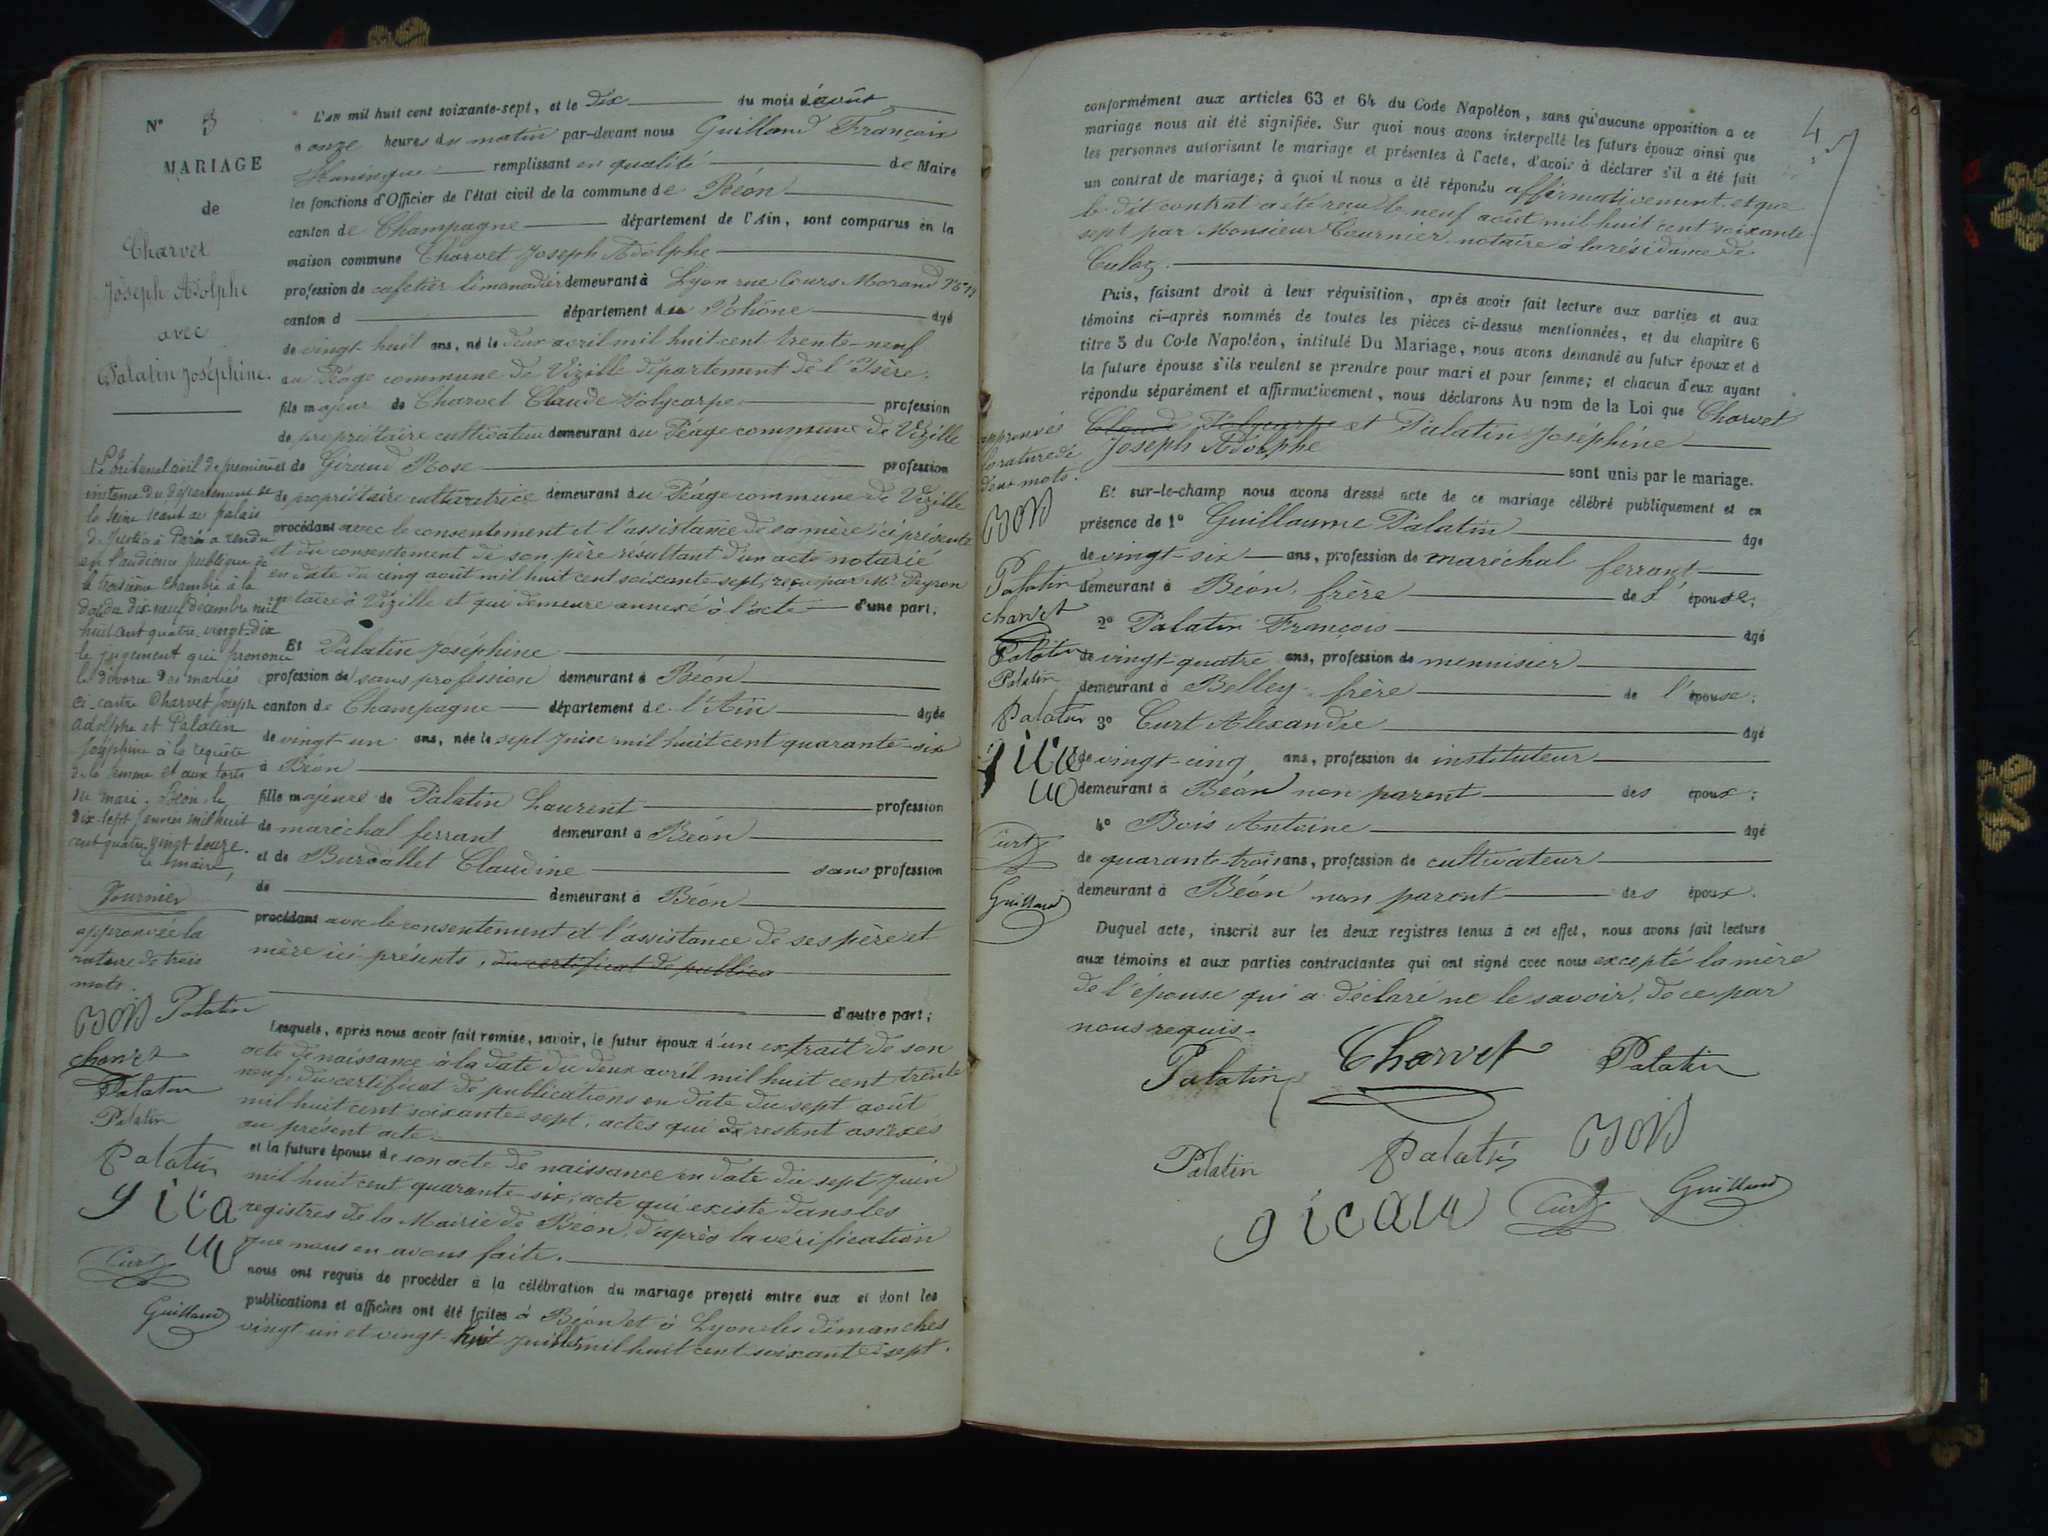 N° 3
MARIAGE
de
Charvet
Joseph Adolphe
avec
Palatin Joséphine.
L'an mil huit cent soixante-sept, et le dix du mois d'août
à onze heures du matin par-devant nous Guilland François
remplissant en qualité de Maire
les fonctions d'Officier de l'état civil de la commune de Béon
canton de Champagne département de l'Ain, sont comparus en la
maison commune Charvet Joseph Adolphe
profession de cafetier limonadier demeurant à Lyon rue Cours Morand
canton d département du Rhône âgé
de vingt-huit ans, né le deux avril mil huit cent trente-neuf
au Péage commune de Vizille département de l'Isère.
fils majeur de Charvet Claude Polycarpe profession
de propriétaire cultivateur demeurant au Péage commune de Vizille
et de Giraud Rose profession
de propriétaire cultivatrice demeurant au Péage commune de Vizille
procédant avec le consentement et l'assistance de sa mère ici présente
et du consentement de son père résultant d'un acte notarié
en date du cinq août mil huit cent soixante-sept, reçu par Mr Peyron
notaire à Vizille et qui demeure annexé à l'acte d'une part;
Et Palatin Joséphine
profession de sans profession demeurant à Béon
canton de Champagne département de l'Ain âgée
de vingt-un ans, née le sept juin mil huit cent quarante-six
à Béon
fille majeure de Palatin Laurent profession
de maréchal ferrant demeurant à Béon
et de Burdallet Claudine sans profession
de demeurant à Béon
procédant avec le consentement et l'assistance de ses père et
mère ici présents, du certificat de publica
d'autre part;
Lesquels, après nous avoir fait remise, savoir, le futur époux d'un extrait de son
acte de naissance à la date du deux avril mil huit cent trente
neuf, du certificat de publications en date du sept août
mil huit cent soixante-sept, actes qui restent annexés
au présent acte.
et la future épouse de son acte de naissance en date du sept juin
mil huit cent quarante-six, acte qui existe dans les
registres de la Mairie de Béon, d'après la vérification
que nous en avons faite.
nous ont requis de procéder à la célébration du mariage projeté entre eux et dont les
publications et affiches ont été faites à Béon et à Lyon les dimanches
vingt un et vingt-huit juillet mil huit cent soixante-sept.
Le tribunal civil de première
instance du département de
la Seine séant au palais
de Justice à Paris a rendu
en l'audience publique de
la troisième chambre à la
date du dix-neuf décembre mil
huit cent quatre-vingt-dix
le jugement qui prononce
le divorce des mariés
ci-contre Charvet Joseph
Adolphe et Palatin
Joséphine à la requête
de la femme et aux torts
du mari. Béon, le
dix-sept janvier mil huit
cent quatre vingt douze.
Le maire,
Fournier
approuvée la
rature de trois
mots.
Bois Palatin
charvet
Palatin
Palatin
Palatin
Curt
Guilland
conformément aux articles 63 et 64 du Code Napoléon, sans qu'aucune opposition a ce
mariage nous ait été signifiée. Sur quoi nous avons interpellé les futurs époux ainsi que
les personnes autorisant le mariage et présentes à l'acte, d'avoir à déclarer s'il a été fait
un contrat de mariage; à quoi il nous a été répondu affirmativement et que
le dit contrat a été reçu le neuf août mil huit cent soixante-
sept par Monsieur Cournier, notaire à la résidence de
Culoz.
Puis, faisant droit à leur réquisition, après avoir fait lecture aux parties et aux
témoins ci-après nommés de toutes les pièces ci-dessus mentionnées, et du chapitre 6
titre 5 du Code Napoléon, intitulé Du Mariage, nous avons demandé au futur époux et à
la future épouse s'ils veulent se prendre pour mari et pour femme; et chacun d'eux ayant
répondu séparément et affirmativement, nous déclarons Au nom de la Loi que Charvet
Claude Polycarpe et Palatin Joséphine
Joseph Adolphe
sont unis par le mariage.
Et sur-le-champ nous avons dressé acte de ce mariage célébré publiquement et en
présence de 1° Guillaume Palatin âgé
de vingt-six ans, profession de maréchal ferrant
demeurant à Béon, frère de l' épouse;
2° Palatin François âgé
de vingt-quatre ans, profession de menuisier
demeurant à Belley frère de l' épouse;
3° Curt Alexandre âgé
de vingt-cinq ans, profession de instituteur
demeurant à Béon non parent des époux;
4° Bois Antoine âgé
de quarante-trois ans, profession de cultivateur
demeurant à Béon non parent des époux.
Duquel acte, inscrit sur les deux registres tenus à cet effet, nous avons fait lecture
aux témoins et aux parties contractantes qui ont signé avec nous excepté la mère
de l'épouse qui a déclaré ne le savoir, de ce par
nous requis.
Palatin Charvet Palatin
Palatin Palatin Bois
Curt Guilland
approuvée
la rature de
deux mots.
Bois
Palatin
charvet
Palatin
Palatin
Palatin
Curt
Guilland